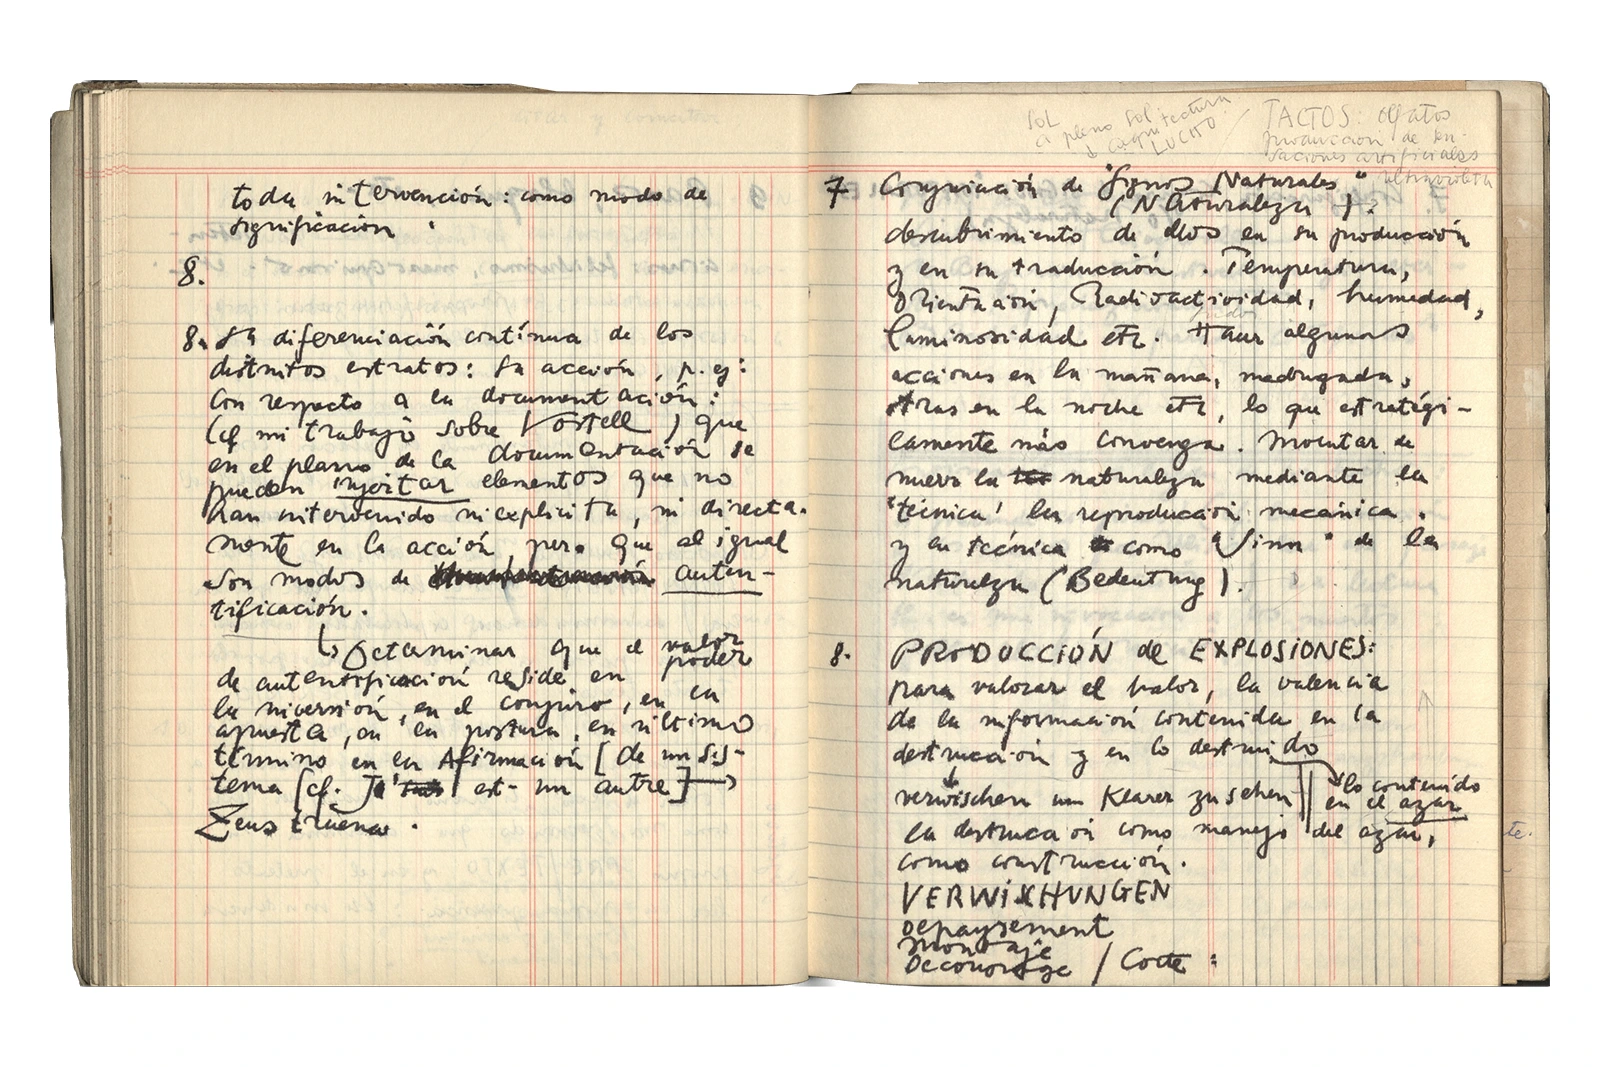 toda intervención: como modo de
significación.
8.
8. La diferenciación contínua de los
distintos estratos: su acción, p. ej:
con respecto a la documentación:
(cf mi trabajo sobre Vostell) que
en el plano de la documentación se
pueden injertar elementos que no
han intervenido ni explicita, ni directa-
mente en la acción, pero que al igual
son modos de auten-
tificación.
Determinar que el valor
poder
de autentificación reside en
la inversión, en el conjuro, en la
apuesta, en la postura, en último
término en la Afirmación [de un sis-
tema [cf. Je est- un autre]
Zeus truena.
SOL
a pleno sol
LUCITO
TACTOS: olfatos
producción de sen-
saciones artificiales
ultravioleta
7 Conjugación de "Signos Naturales"
(Naturaleza +?
descubrimiento de ellos en su producción
y en su traducción. Temperatura,
orientación, Radioactividad, humedad,
luminosidad etc. Hacer algunas
acciones en la mañana, madrugada,
otras en la noche etc, lo que estratégi-
camente más convenga. Montar de
nuevo la naturaleza mediante la
'técnica' la reproducción mecánica.
y en técnica como "Sinn" de la
naturaleza (Bedeutung).
8. PRODUCCIÓN de EXPLOSIONES:
para valorar el valor, la valencia
de la información contenida en la
destrucción y en lo destruido
lo contenido
verwischen um Klarer zu sehen en el azar
la destrucción como manejo del azar,
como construcción.
VERWISCHUNGEN
depaysement
Montaje
Decoupage / Corte:
te.